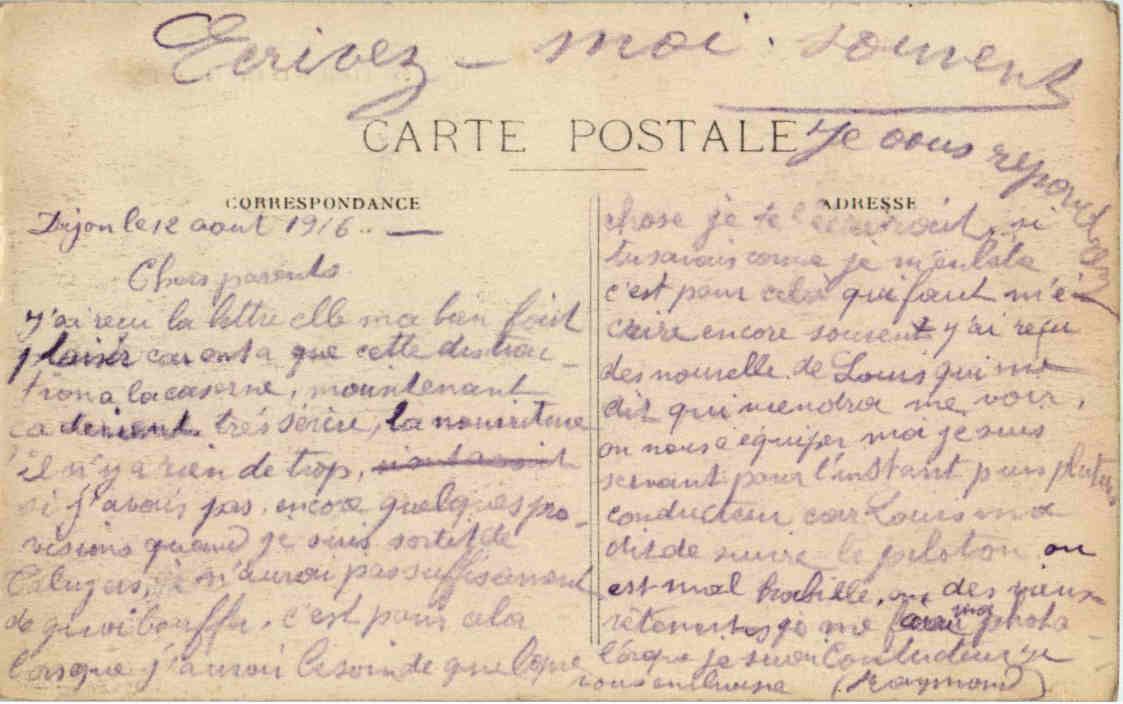 Ecrivez - moi souvent
je vous repondrer
CARTE POSTALE
CORRESPONDANCE
Dijon le 12 aout 1916.
Chers parents
j'ai recu la lettre elle ma bien fait
plaisir car onta que cette distrac-
tion a la caserne, maintenant
ca devient très sérieu, la nourriture
il n'y a rien de trop,
si j'avais pas encore quelques pro-
visions quand je suis sortit de
je n'aurai pas suffisament
de quoi bouffer, c'est pour cela
lorsque j'aurai besoin de quelque
ADRESSE
chose je te l'ecrirait, si
tu savais come je m'enbete
c'est pour cela qui faut m'é-
crire encore souvent j'ai reçu
des nouvelle de Louis qui me
dit qui viendra me voir,
on nous a équiper moi je suis
servant pour l'instant puis plutard
conducteur car Louis m'a
dit de suivre le peloton on
est mal habille, on des vieux
vêtements je me ferai ma photo
lorque je serai conducteur je
vous enverai (Raymond)